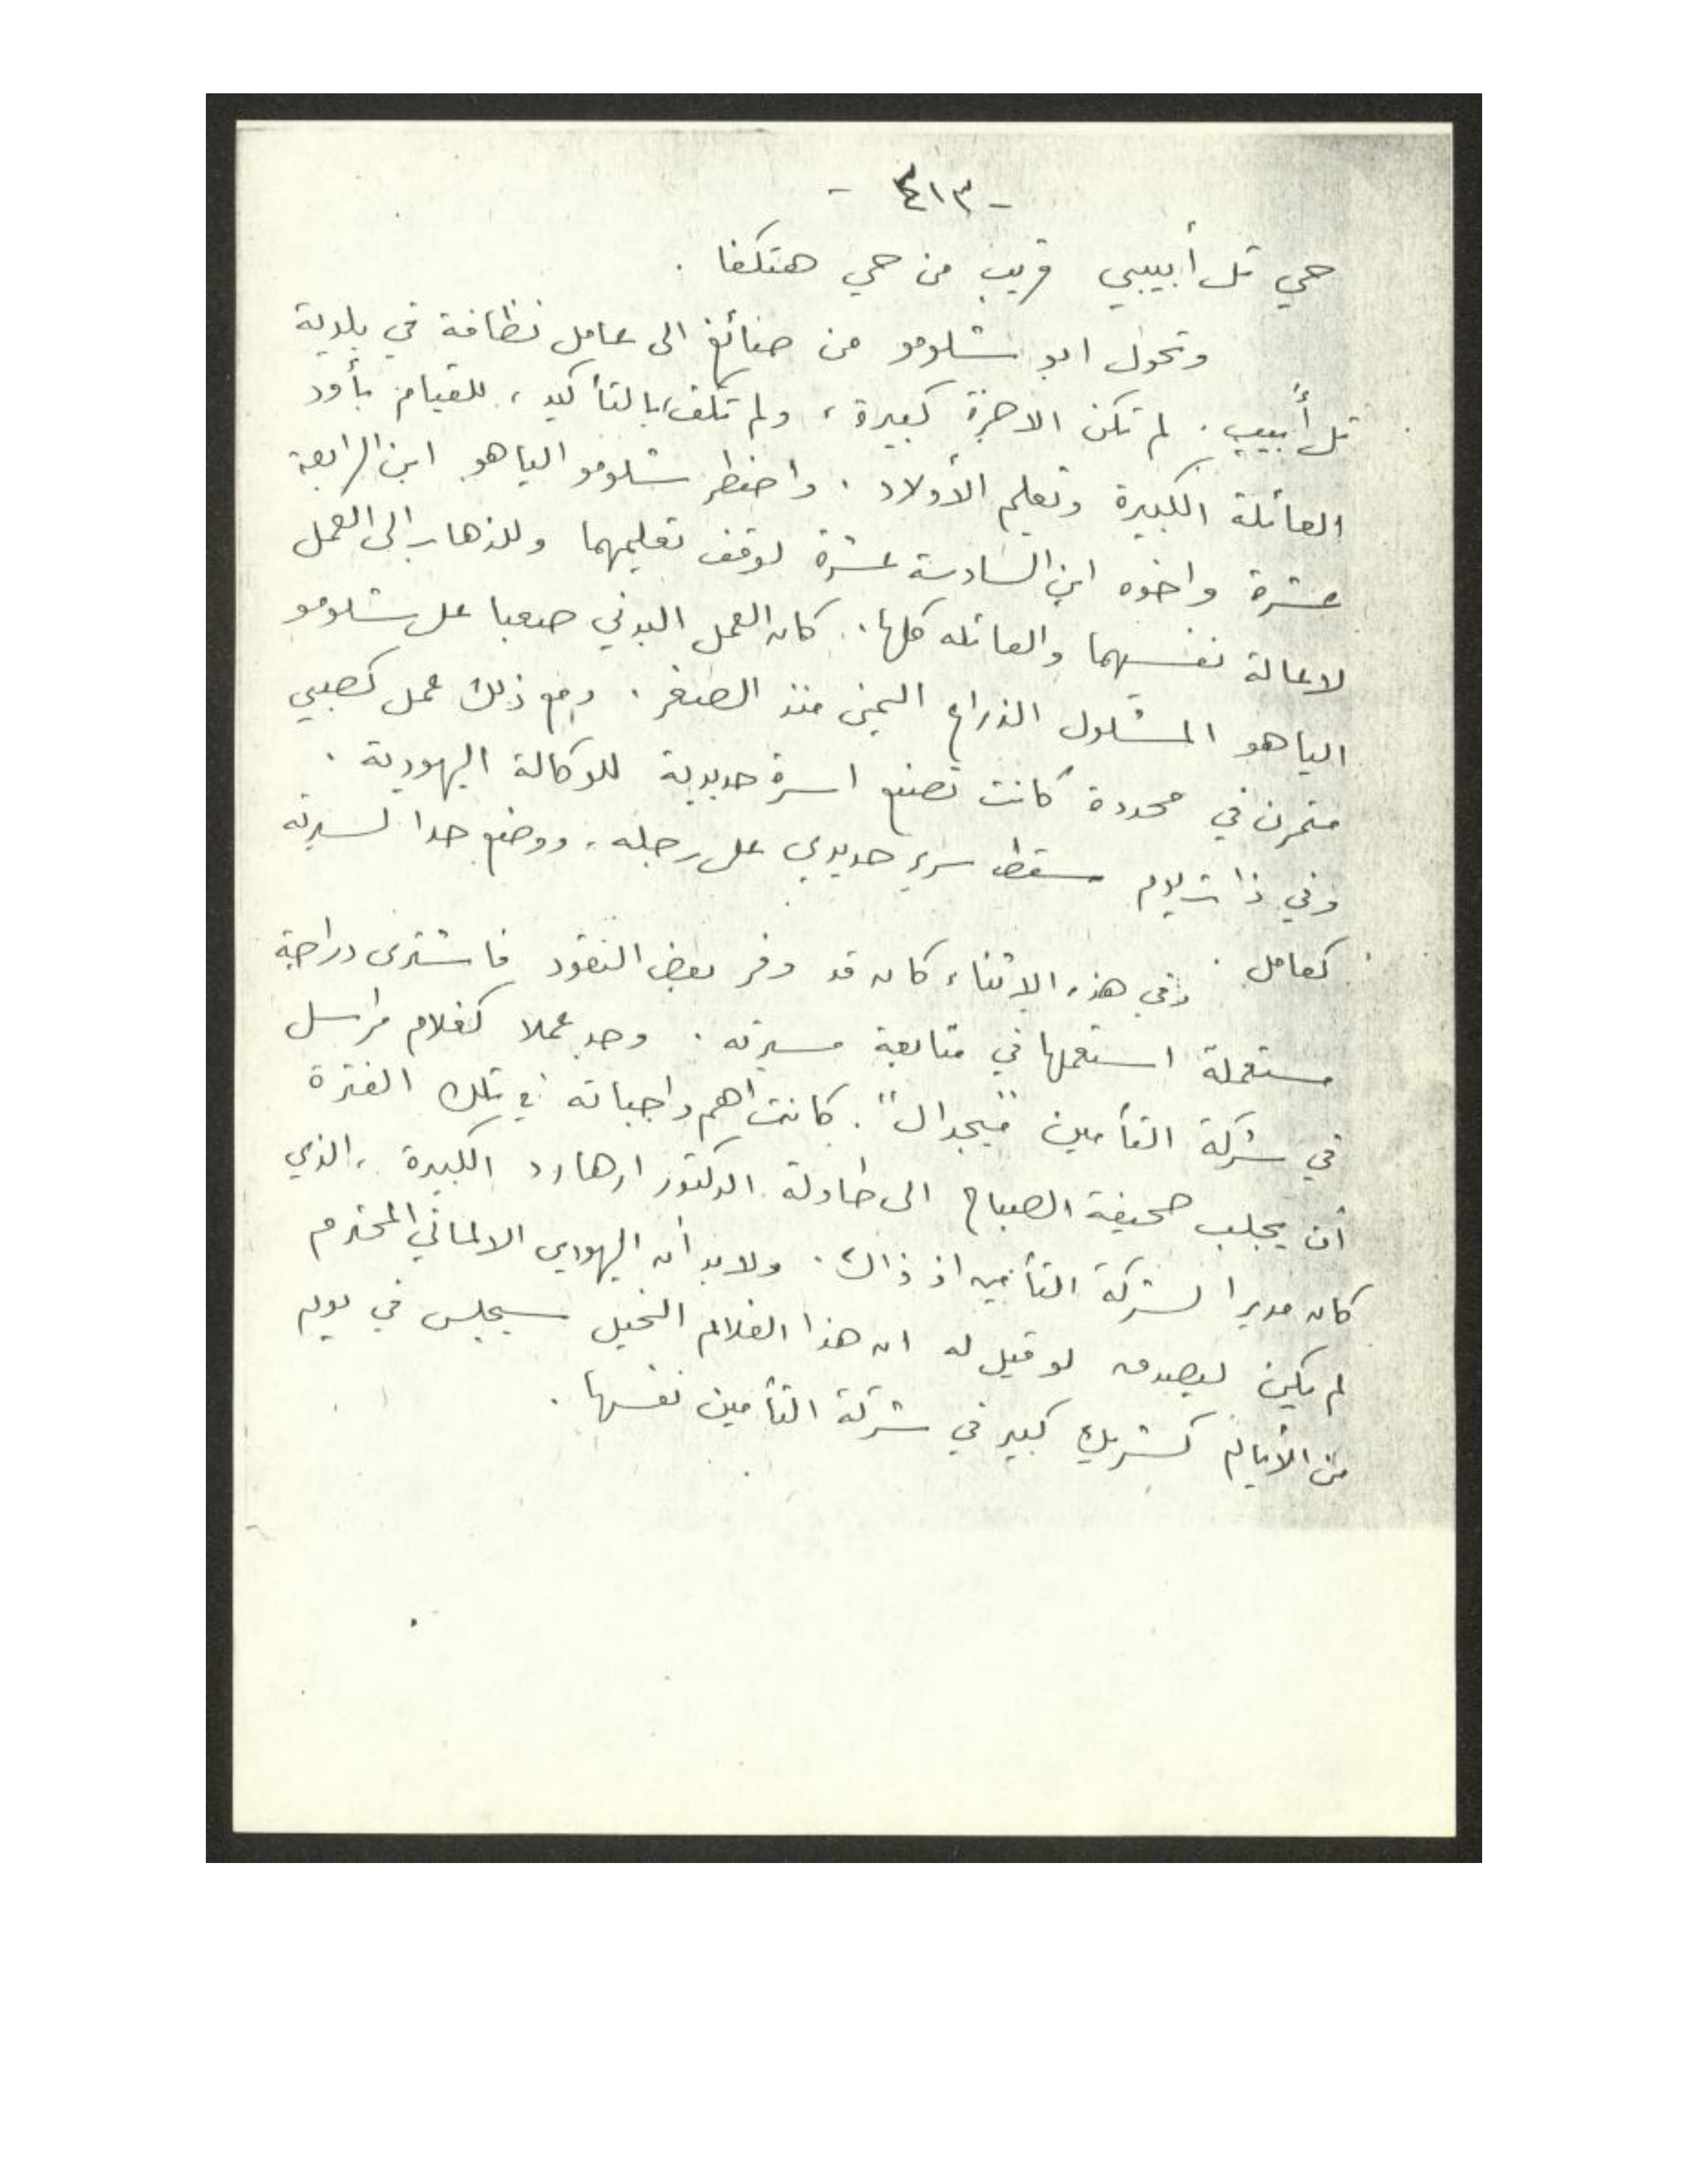 - ٣١٤ -
حي تل أبيبي قريب من حي هتكفا .
وتحول ابو شلومو من صائغ الى عامل نظافة في بلدية
تل أبيب . لم تكن الاجرة كبيرة ، ولم تكف بالتأكيد ، للقيام بأود
العائلة الكبيرة وتعليم الأولاد . واضطر شلومو الياهو ابن الرابعة
عشرة واخوه ابن السادسة عشرة لوقف تعليمهما وللذهاب الى العمل
لاعالة نفسيهما والعائله كلها . كان العمل البدني صعبا على شلومو
الياهو المشلول الذراع اليمنى منذ الصغر . ومع ذلك عمل كصبي
متمرن في محددة كانت تصنع اسرة حديدية للوكالة اليهودية .
وفي ذات يوم سقط سرير حديدي على رجله ، ووضع حدا لسيرته
كعامل . وفي هذه الاثناء كان قد وفر بعض النقود فاشترى دراجة
مستعملة استعملها في متابعة مسيرته . وجد عملا كغلام مراسل
في شركة التأمين "ميجدال" . كانت اهم واجباته في تلك الفترة
أن يجلب صحيفة الصباح الى طاولة الدكتور ارهارد الكبيرة ، الذي
كان مديرا لشركة التأمين اذ ذاك . ولا بد أن اليهودي الالماني المحترم
لم يكن ليصدق لو قيل له ان هذا الغلام النحيل سيجلس في يوم
من الأيام كشريك كبير في شركة التأمين نفسها .